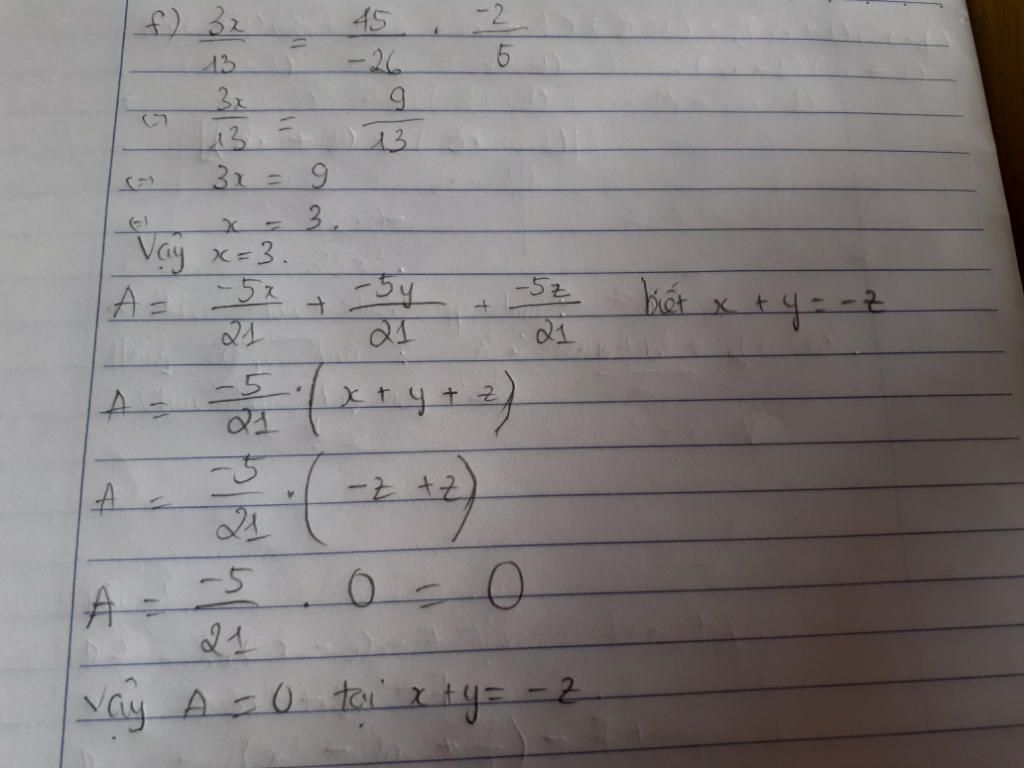 f) 3x/13 = 45/-26 . -2/5
<=> 3x/13 = 9/13
<=> 3x = 9
<=> x = 3.
Vậy x = 3.
A = -5x/21 + -5y/21 + -5z/21 biết x + y = -z
A = -5/21 . (x + y + z)
A = -5/21 . (-z + z)
A = -5/21 . 0 = 0
Vậy A = 0 tại x + y = -z.